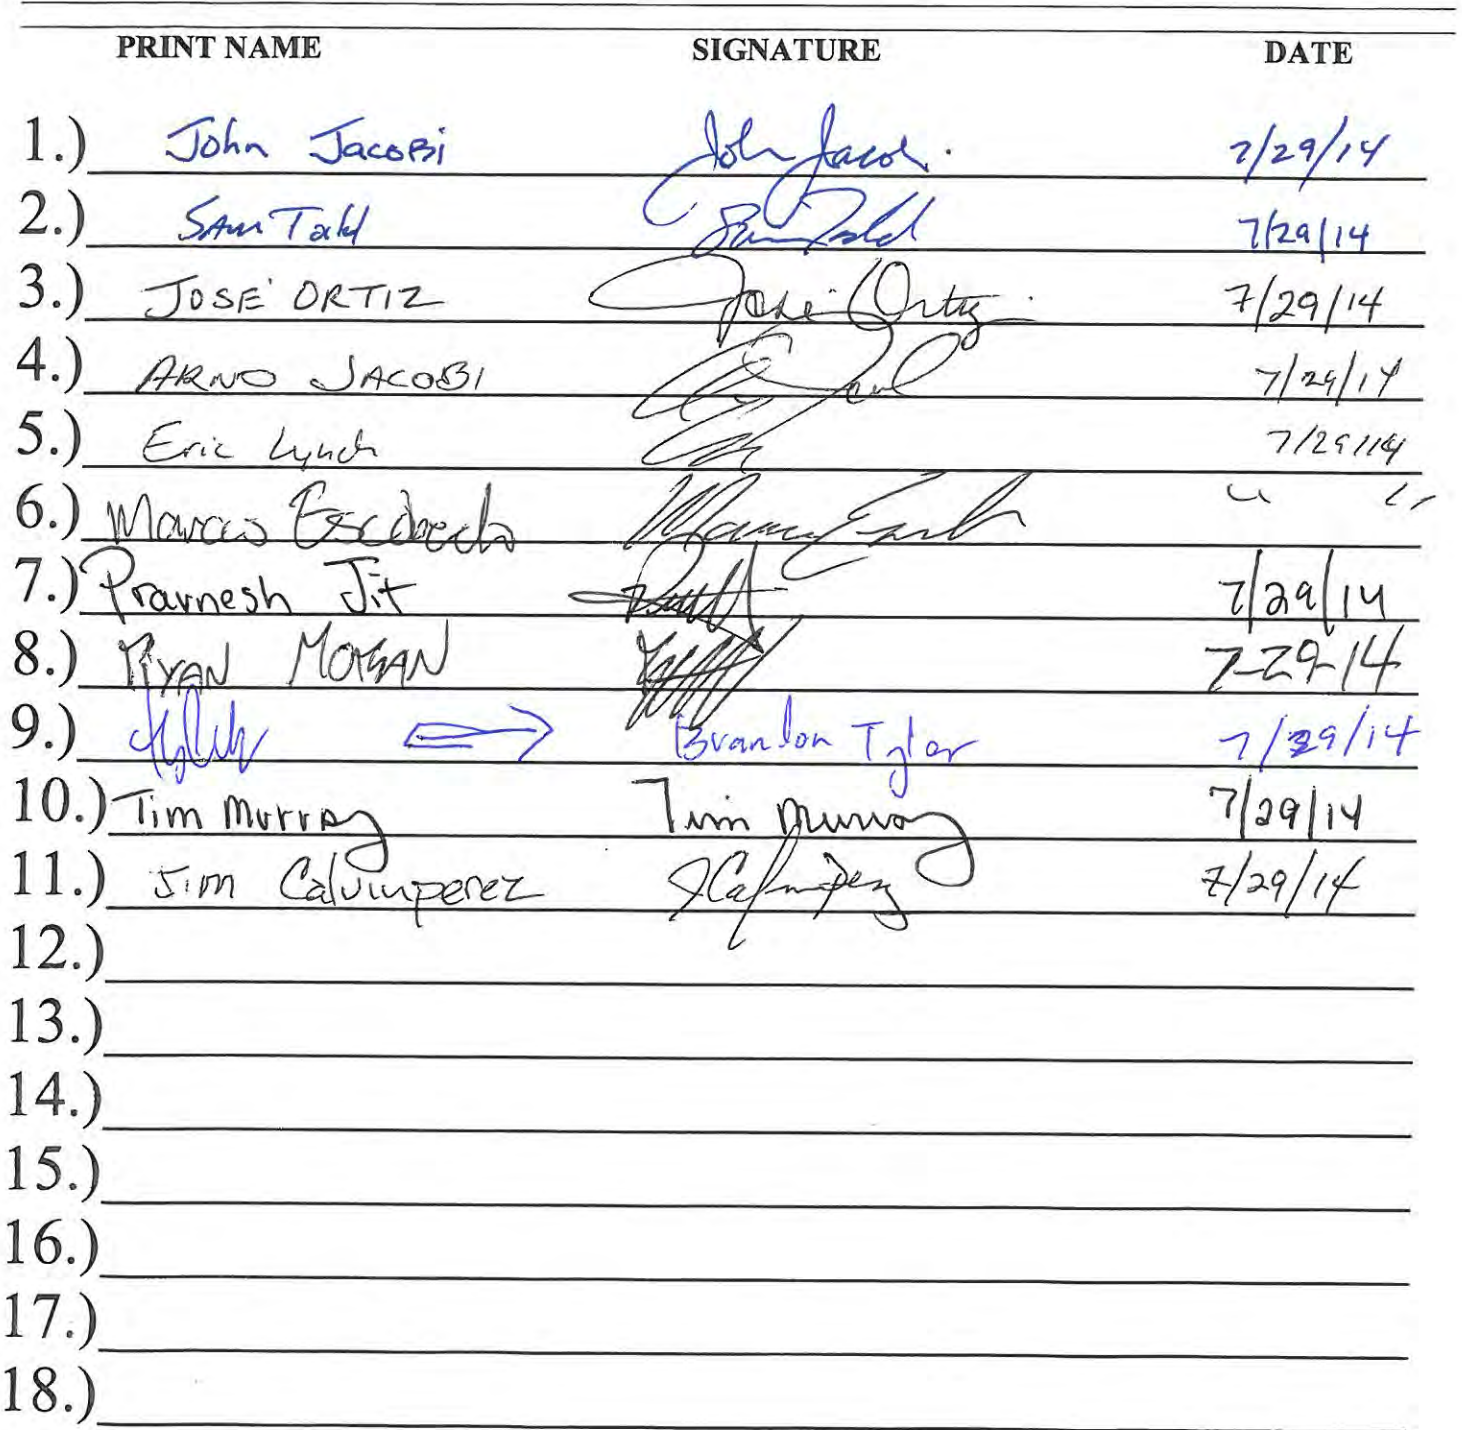 PRINT NAME SIGNATURE DATE
1.) John Jacobi John Jacobi 7/29/14
2.) Sam Todd 7/29/14
3.) JOSÉ ORTIZ José Ortiz 7/29/14
4.) ARNO JACOBI 7/29/14
5.) Eric Lynch 7/29/14
6.) Marcos Escobedo " "
7.) Pravnesh Jit 7/29/14
8.) RYAN MORGAN 7-29-14
9.) Brandon Tyler 7/29/14
10.) Tim Murray Tim Murray 7/29/14
11.) Jim Calvinperez 7/29/14
12.)
13.)
14.)
15.)
16.)
17.)
18.)